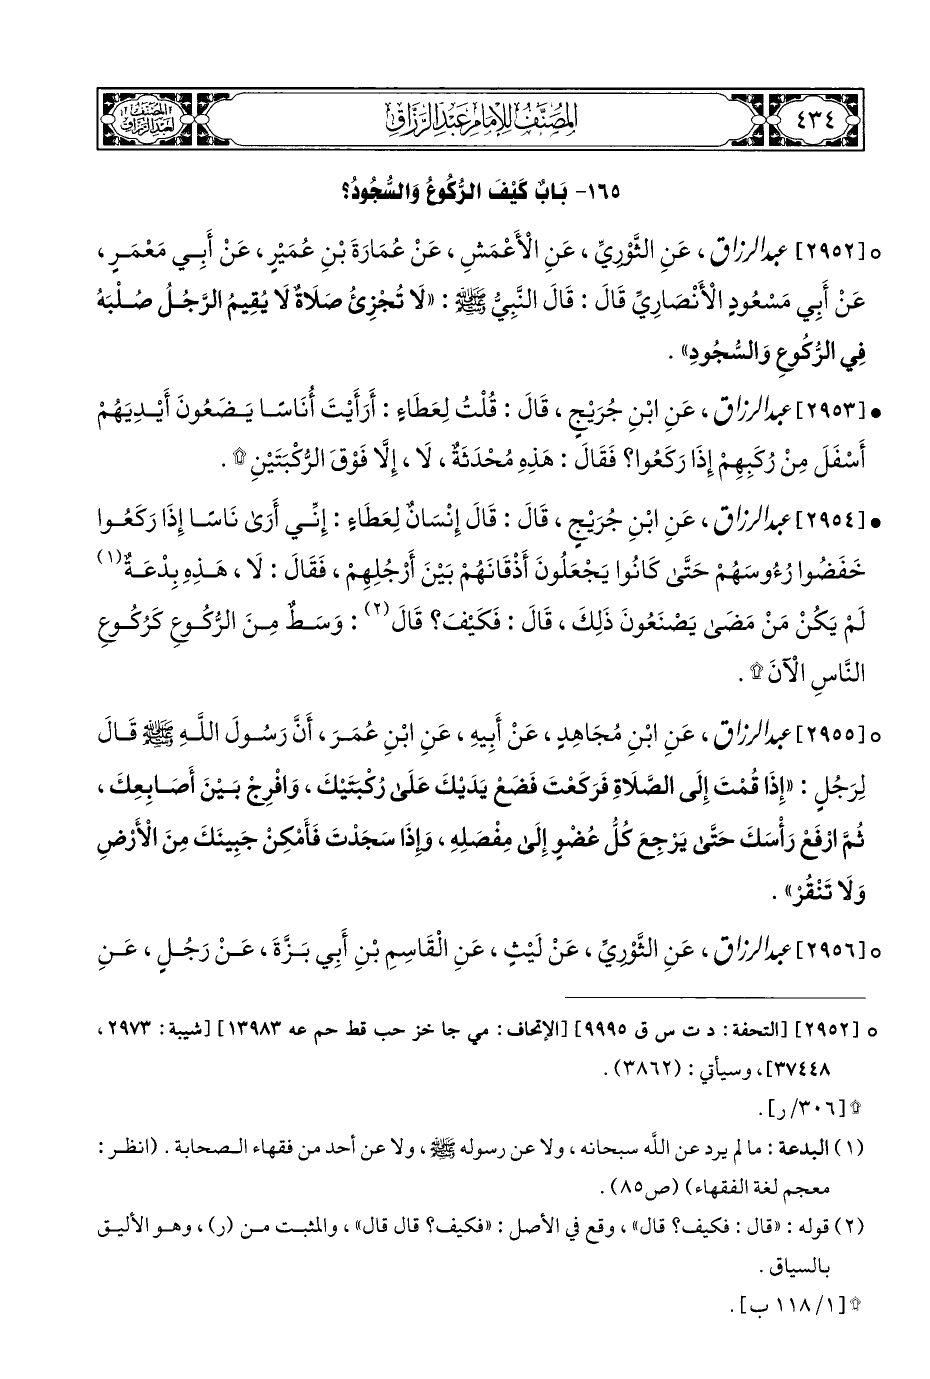 ٤٣٤
المصنف للإمام عبد الرزاق
المصنف لعبد الرزاق
١٦٥- بَابٌ كَيْفَ الرُّكُوعُ وَالسُّجُودُ؟
○ [٢٩٥٢] عبد الرزاق، عَنِ الثَّوْرِيِّ، عَنِ الْأَعْمَشِ، عَنْ عُمَارَةَ بْنِ عُمَيْرٍ، عَنْ أَبِي مَعْمَرٍ،
عَنْ أَبِي مَسْعُودٍ الْأَنْصَارِيِّ قَالَ: قَالَ النَّبِيُّ ﷺ: «لَا تُجْزِئُ صَلَاةٌ لَا يُقِيمُ الرَّجُلُ صُلْبَهُ
فِي الرُّكُوعِ وَالسُّجُودِ».
• [٢٩٥٣] عبد الرزاق، عَنِ ابْنِ جُرَيْجٍ، قَالَ: قُلْتُ لِعَطَاءٍ: أَرَأَيْتَ أُنَاسًا يَضَعُونَ أَيْدِيَهُمْ
أَسْفَلَ مِنْ رُكَبِهِمْ إِذَا رَكَعُوا؟ فَقَالَ: هَذِهِ مُحْدَثَةٌ، لَا، إِلَّا فَوْقَ الرُّكْبَتَيْنِ ۩.
• [٢٩٥٤] عبد الرزاق، عَنِ ابْنِ جُرَيْجٍ، قَالَ: قَالَ إِنْسَانٌ لِعَطَاءٍ: إِنِّي أَرَىٰ نَاسًا إِذَا رَكَعُوا
خَفَضُوا رُءُوسَهُمْ حَتَّىٰ كَانُوا يَجْعَلُونَ أَذْقَانَهُمْ بَيْنَ أَرْجُلِهِمْ، فَقَالَ: لَا، هَذِهِ بِدْعَةٌ(١)
لَمْ يَكُنْ مَنْ مَضَىٰ يَصْنَعُونَ ذَلِكَ، قَالَ: فَكَيْفَ؟ قَالَ(٢): وَسَطٌ مِنَ الرُّكُوعِ كَرُكُوعِ
النَّاسِ الْآنَ ۩.
○ [٢٩٥٥] عبد الرزاق، عَنِ ابْنِ مُجَاهِدٍ، عَنْ أَبِيهِ، عَنِ ابْنِ عُمَرَ، أَنَّ رَسُولَ اللَّهِ ﷺ قَالَ
لِرَجُلٍ: «إِذَا قُمْتَ إِلَى الصَّلَاةِ فَرَكَعْتَ فَضَعْ يَدَيْكَ عَلَىٰ رُكْبَتَيْكَ، وَافْرِجْ بَيْنَ أَصَابِعِكَ،
ثُمَّ ارْفَعْ رَأْسَكَ حَتَّىٰ يَرْجِعَ كُلُّ عُضْوٍ إِلَىٰ مِفْصَلِهِ، وَإِذَا سَجَدْتَ فَأَمْكِنْ جَبِينَكَ مِنَ الْأَرْضِ
وَلَا تَنْقُرْ».
○ [٢٩٥٦] عبد الرزاق، عَنِ الثَّوْرِيِّ، عَنْ لَيْثٍ، عَنِ الْقَاسِمِ بْنِ أَبِي بَزَّةَ، عَنْ رَجُلٍ، عَنِ
○ [٢٩٥٢] [التحفة: د ت س ق ٩٩٩٥] [الإتحاف: مي جا خز حب قط حم عه ١٣٩٨٣] [شيبة: ٢٩٧٣،
٣٧٤٤٨]، وسيأتي: (٣٨٦٢).
۩ [٣٠٦/ ر].
(١) البدعة: ما لم يرد عن اللَّه سبحانه، ولا عن رسوله ﷺ، ولا عن أحد من فقهاء الصحابة. (انظر:
معجم لغة الفقهاء) (ص٨٥).
(٢) قوله: «قال: فكيف؟ قال»، وقع في الأصل: «فكيف؟ قال قال»، والمثبت من (ر)، وهو الأليق
بالسياق.
۩ [١/ ١١٨ ب].